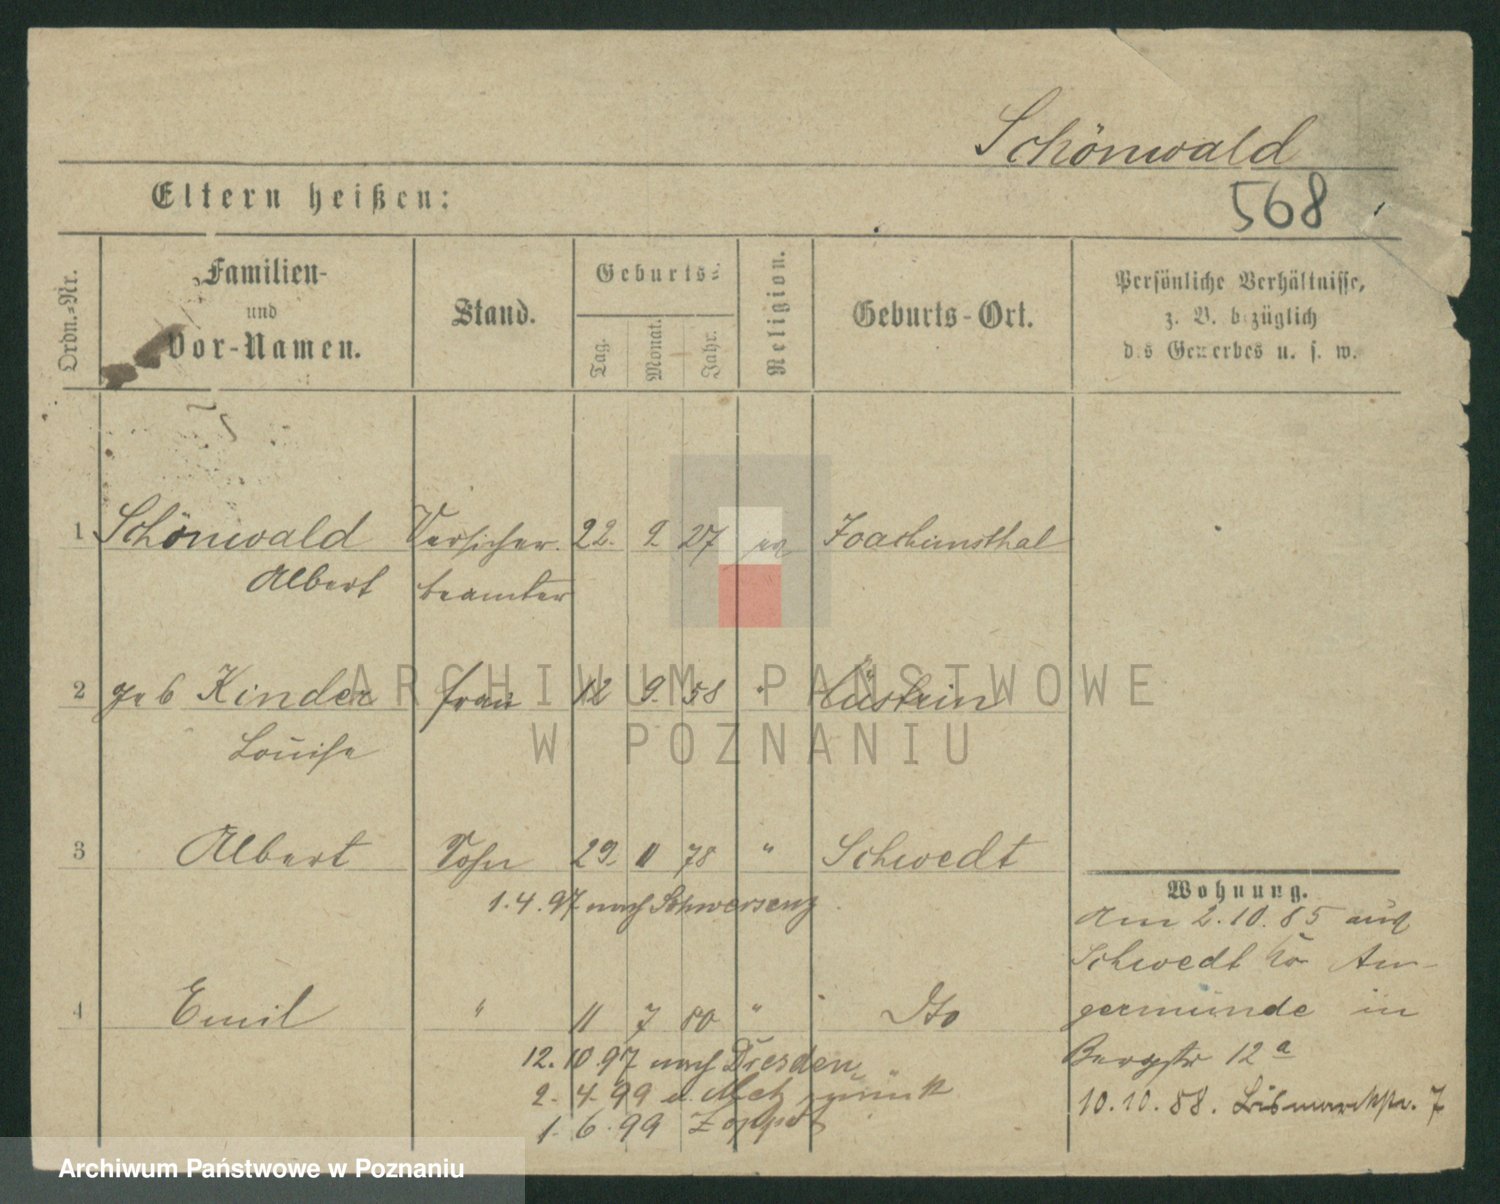 Schönwald
Eltern heißen:
568
Ordn.-Nr.
Familien-
und
Vor-Namen.
Stand.
Geburts-
Tag.
Monat.
Jahr.
Religion.
Geburts-Ort.
Persönliche Verhältnisse,
z. B. bezüglich
des Gewerbes u. s. w.
1 Schönwald Versicher. 22. 2 27 ev Joachimsthal
Albert beamter
2 geb Kinder Frau 12 9. 58 " Cüstrin
Louise
3 Albert Sohn 29. 11 78 " Schwedt
1.4.97 nach Schwersenz
4 Emil " 11 7 80 " Dto
12.10.97 nach Dresden
2. 4. 99 v. Metz zurück
1. 6. 99 Zoppot
Wohnung.
Am 2.10.85 aus
Schwedt Kr An-
germünde in
Bergstr 12a
10.10.88. Bismarckstr. 7
ARCHIWUM PAŃSTWOWE
W POZNANIU
Archiwum Państwowe w Poznaniu